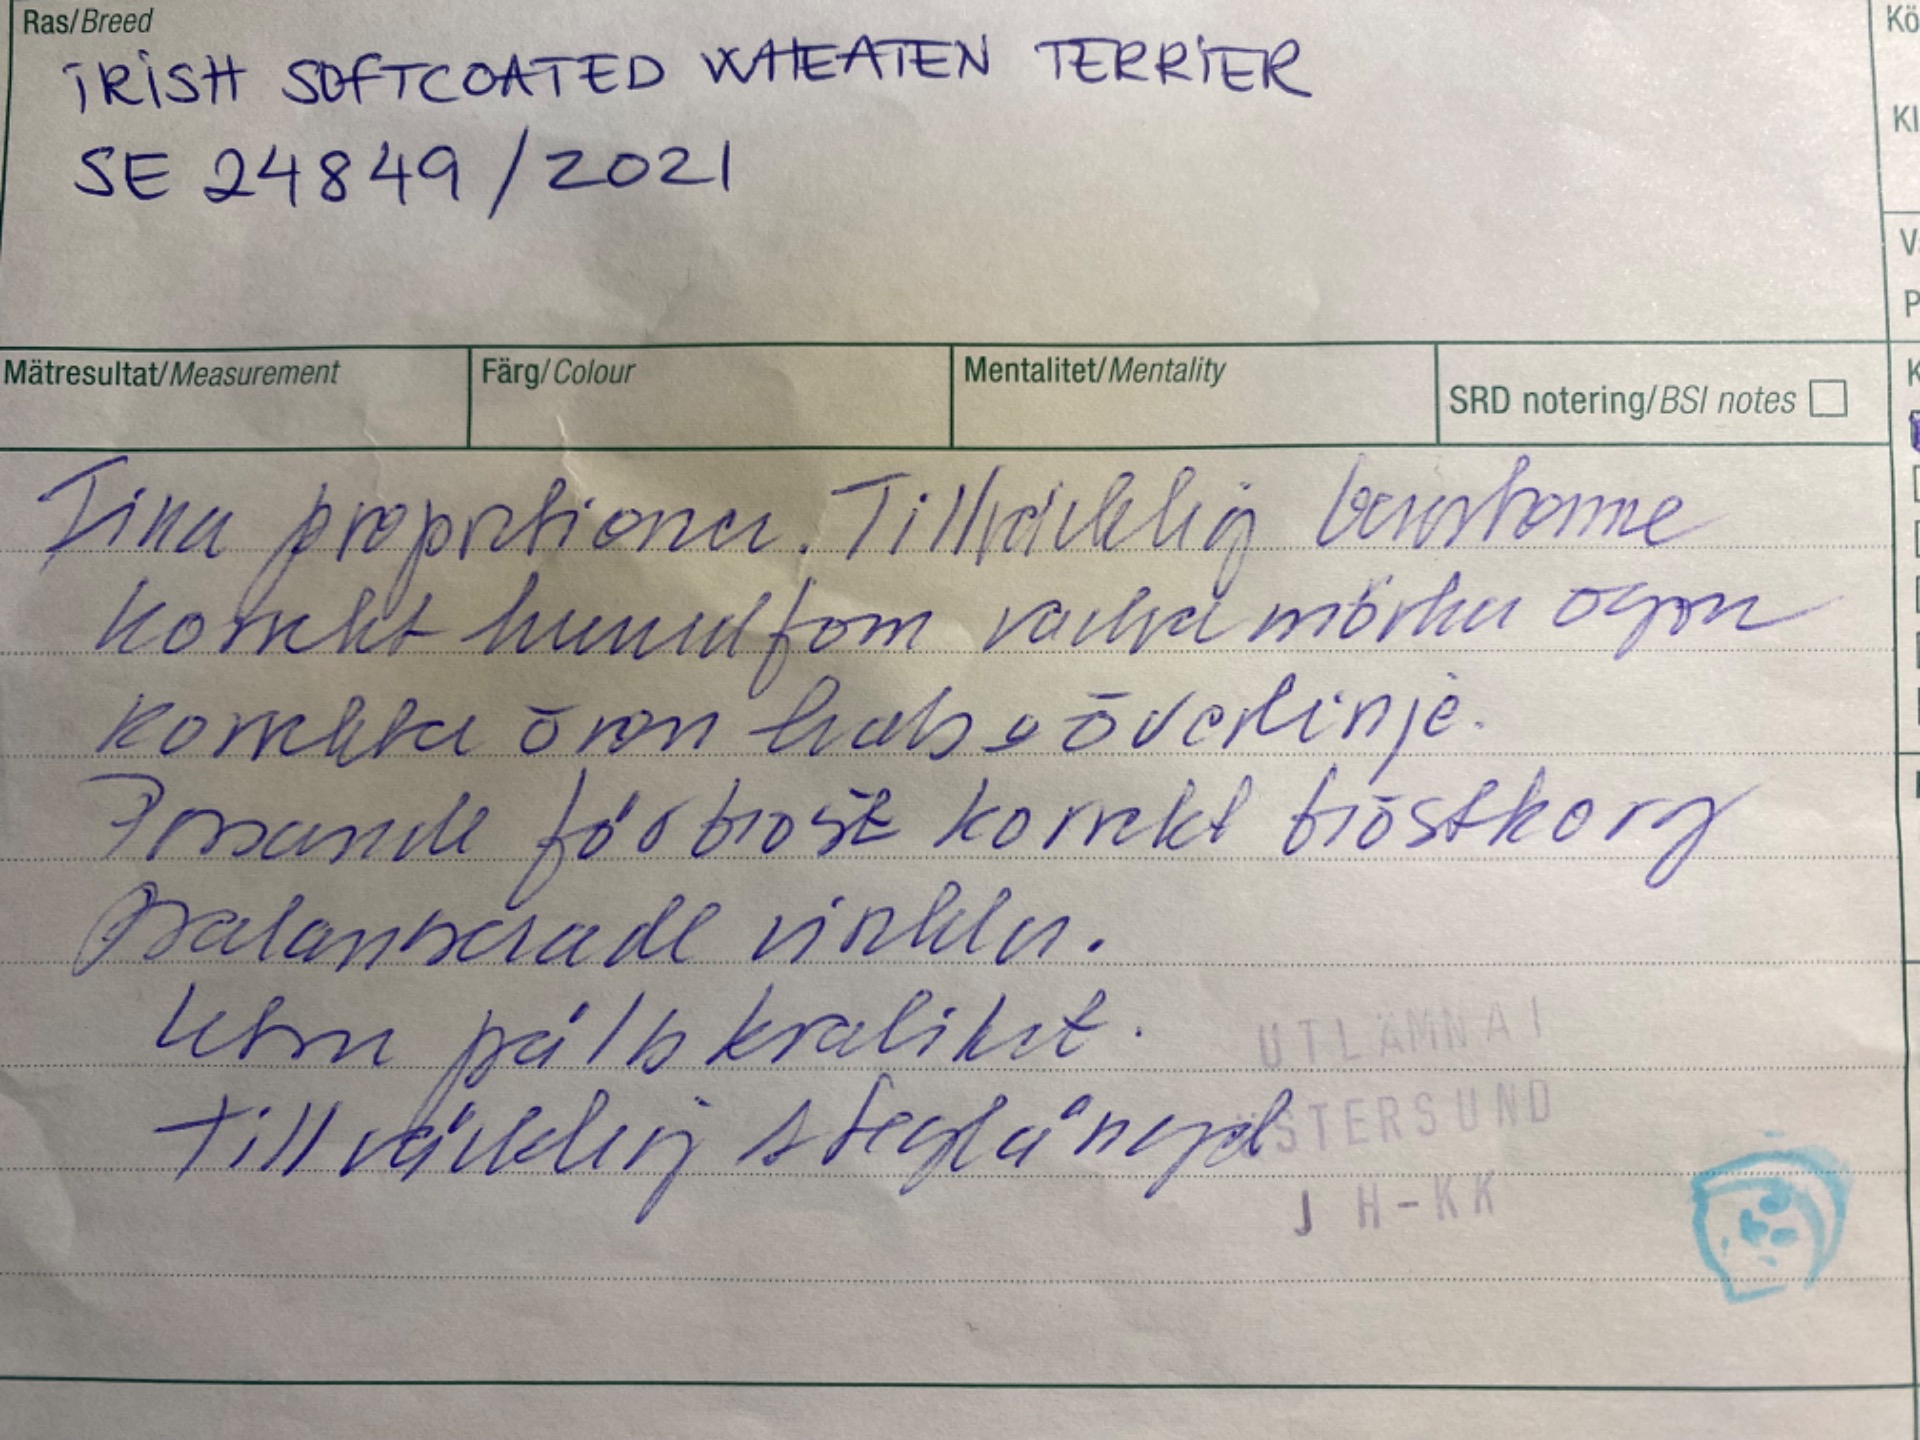 Ras/Breed
Kö
IRISH SOFTCOATED WHEATEN TERRIER
Kl
SE 24849/2021
V
P
Mätresultat/Measurement Färg/Colour Mentalitet/Mentality SRD notering/BSI notes
K
Fina proportioner. Tillräcklig benstomme
Korrekt huvudform vackra mörka ögon
Korrekta öron hals o överlinje.
Passande förbröst korrekt bröstkorg
Balanserade vinklar.
pälskvalitet.
Tillräcklig steglängd
UTLÄMNAT
ÖSTERSUND
J H-KK